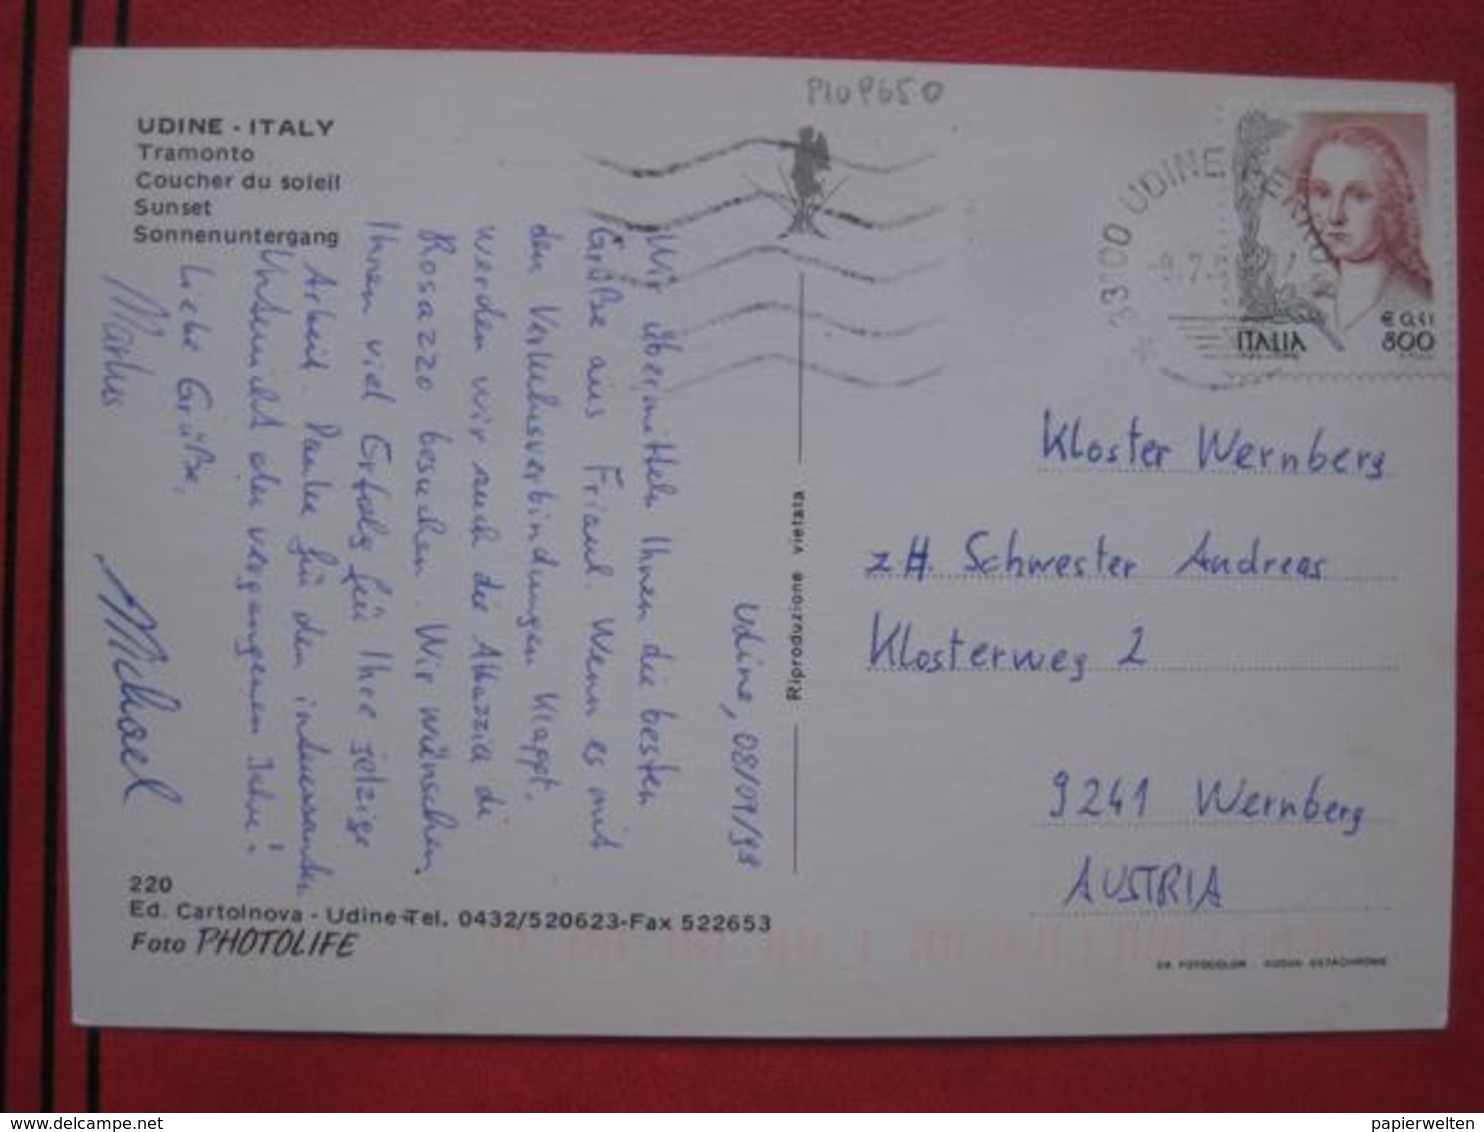 P109650
UDINE - ITALY
Tramonto
Coucher du soleil
Sunset
Sonnenuntergang
33100 UDINE FERROV
ITALIA
€ 0,41
800
Udine, 08/07/99
Wir übermitteln Ihnen die besten
Grüße aus Friaul. Wenn es mit
den Verkehrsverbindungen klappt,
werden wir auch die Abbazia di
Rosazzo besuchen. Wir wünschen
Ihnen viel Erfolg für Ihre jetzige
Arbeit. Danke für den interessanten
Unterricht der vergangenen Jahre!
Liebe Grüße,
Markus
Michael
Riproduzione vietata
Kloster Wernberg
zH. Schwester Andreas
Klosterweg 2
9241 Wernberg
AUSTRIA
220
Ed. Cartolnova - Udine - Tel. 0432/520623-Fax 522653
Foto PHOTOLIFE
papierwelten
delcampe.net